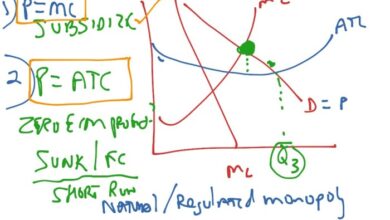 1) P=MC
SUBSIDIZE
2) P=ATC
ZERO EM profit
SUNK/FC
SHORT RUN
NATURAL/Regulated monopoly
MC
ATC
D=P
MC
Q3